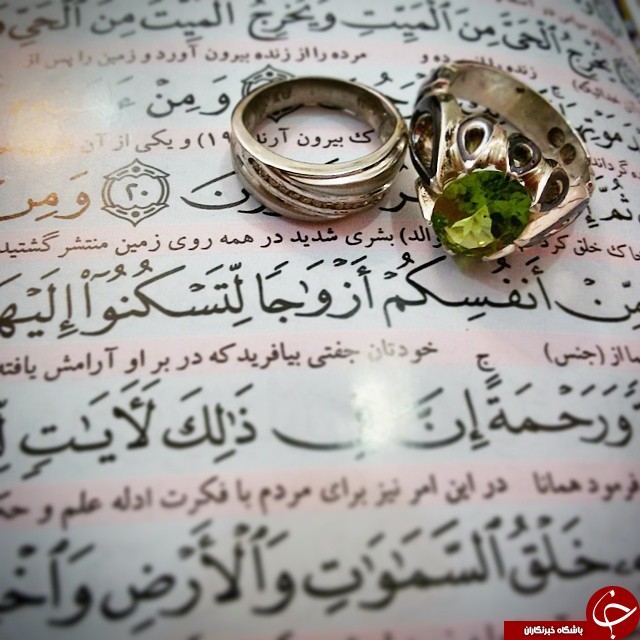 يُخْرِجُ ٱلْحَىَّ مِنَ ٱلْمَيِّتِ وَيُخْرِجُ ٱلْمَيِّتَ مِنَ ٱلْحَىِّ
زنده را از مرده و مرده را از زنده بیرون آورد و زمین را پس از
وَمِنْ
ک بیرون آرند (۱۹) و یکی از آن
ثُمَّ ٢٠ وَمِنْ
خاک خلق کرد بشری شدید در همه روی زمین منتشر گشتید
مِّنْ أَنفُسِكُمْ أَزْوَٰجًا لِّتَسْكُنُوٓا۟ إِلَيْهَا
ما از (جنس) خودتان جفتی بیافرید که در بر او آرامش یافته
وَرَحْمَةً ۚ إِنَّ فِى ذَٰلِكَ لَـَٔايَـٰتٍ
فرمود همانا در این امر نیز برای مردم با فکرت ادله علم و حک
خَلْقُ ٱلسَّمَـٰوَٰتِ وَٱلْأَرْضِ وَٱخْ
باشگاه خبرنگاران